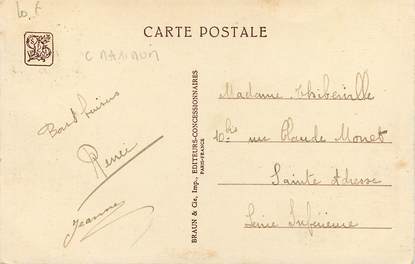 10 F
CARTE POSTALE
C MAXIMUM
Bons baisers
Renée
Jeanne
BRAUN & Cie, Imp., EDITEURS-CONCESSIONNAIRES
PARIS-FRANCE
Madame Thiberville
rue Claude Monet
Sainte Adresse
Seine Inférieure